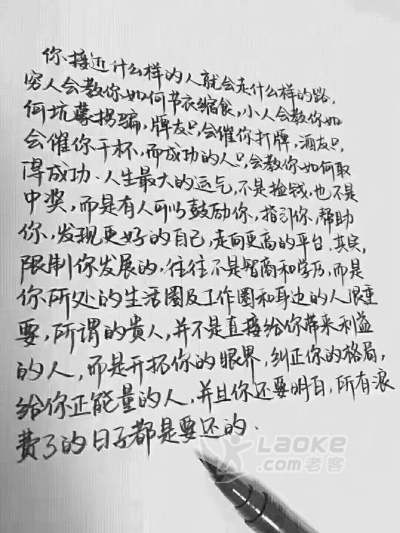 你接近什么样的人就会走什么样的路,
穷人会教你如何节衣缩食,小人会教你如
何坑蒙拐骗,牌友只会催你打牌,酒友只
会催你干杯,而成功的人只会教你如何取
得成功.人生最大的运气,不是捡钱,也不是
中奖,而是有人可以鼓励你,指引你,帮助
你,发现更好的自己,走向更高的平台.其实,
限制你发展的,往往不是智商和学历,而是
你所处的生活圈及工作圈和身边的人很重
要,所谓的贵人,并不是直接给你带来利益
的人,而是开拓你的眼界,纠正你的格局,
给你正能量的人,并且你还要明白,所有浪
费了的日子都是要还的.
Laoke
.com老客